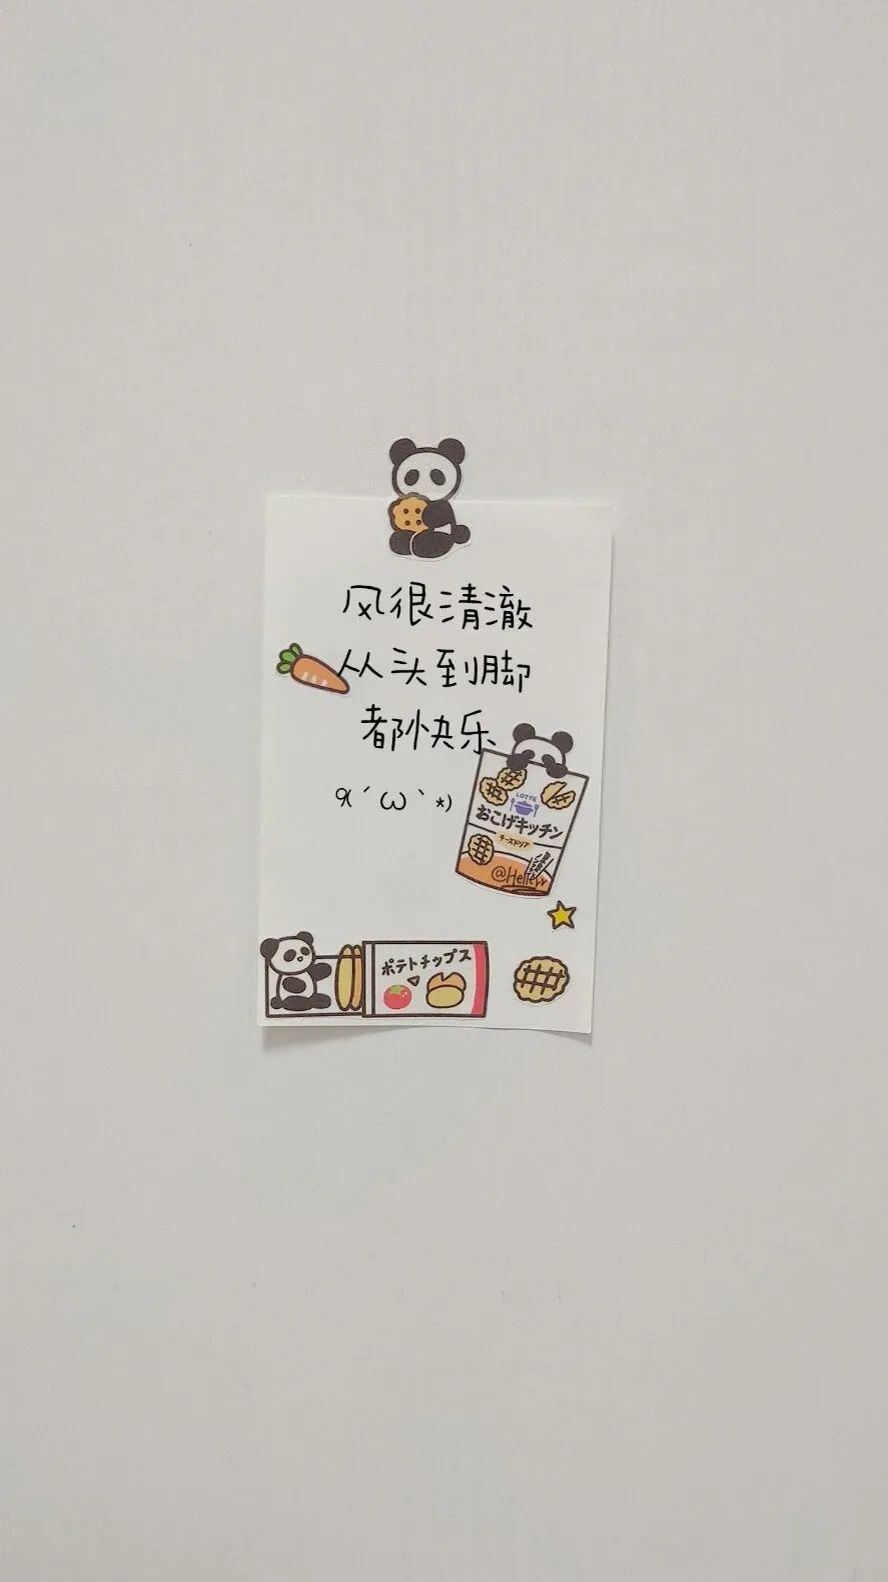 风很清澈
从头到脚
都快乐
9(´ω`*)
LOTTE
おこげキッチン
チーズドリア
ポテトチップス